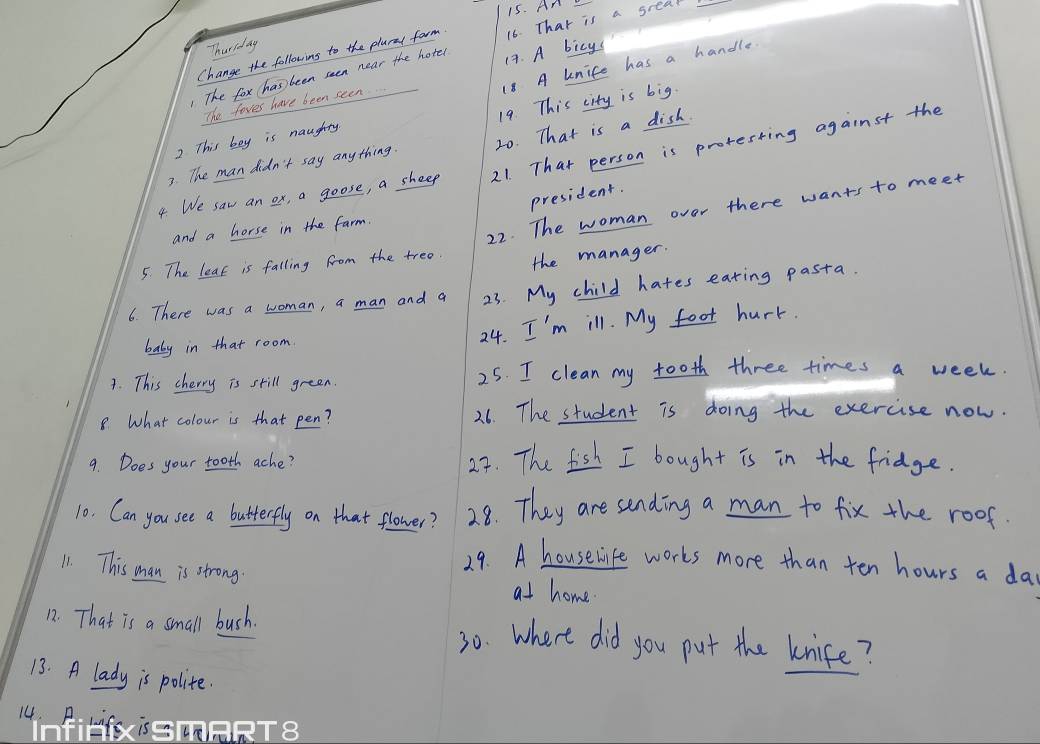 Thursday
Change the following to the plural form.
1. The fox has been seen near the hotel
The foxes have been seen ...
2. This boy is naughty.
3. The man didn't say anything.
4. We saw an ox, a goose, a sheep
and a horse in the farm.
5. The leaf is falling from the tree.
6. There was a woman, a man and a
baby in that room.
7. This cherry is still green.
8. What colour is that pen?
9. Does your tooth ache?
10. Can you see a butterfly on that flower?
11. This man is strong.
12. That is a small bush.
13. A lady is polite.
14. A wife is a woman.
15. An
16. That is a great
17. A
18. A knife has a handle.
19. This city is big.
20. That is a dish.
21. That person is protesting against the
president.
22. The woman over there wants to meet
the manager.
23. My child hates eating pasta.
24. I'm ill. My foot hurt.
25. I clean my tooth three times a week.
26. The student is doing the exercise now.
27. The fish I bought is in the fridge.
28. They are sending a man to fix the roof.
29. A housewife works more than ten hours a day
at home.
30. Where did you put the knife?
Infinix SMART 8